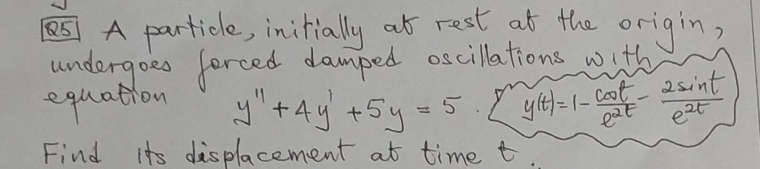 Q5 A particle, initially at rest at the origin,
undergoes forced damped oscillations with
equation y'' + 4y' + 5y = 5. y(t) = 1 - cost/e^2t - 2sint/e^2t
Find its displacement at time t.